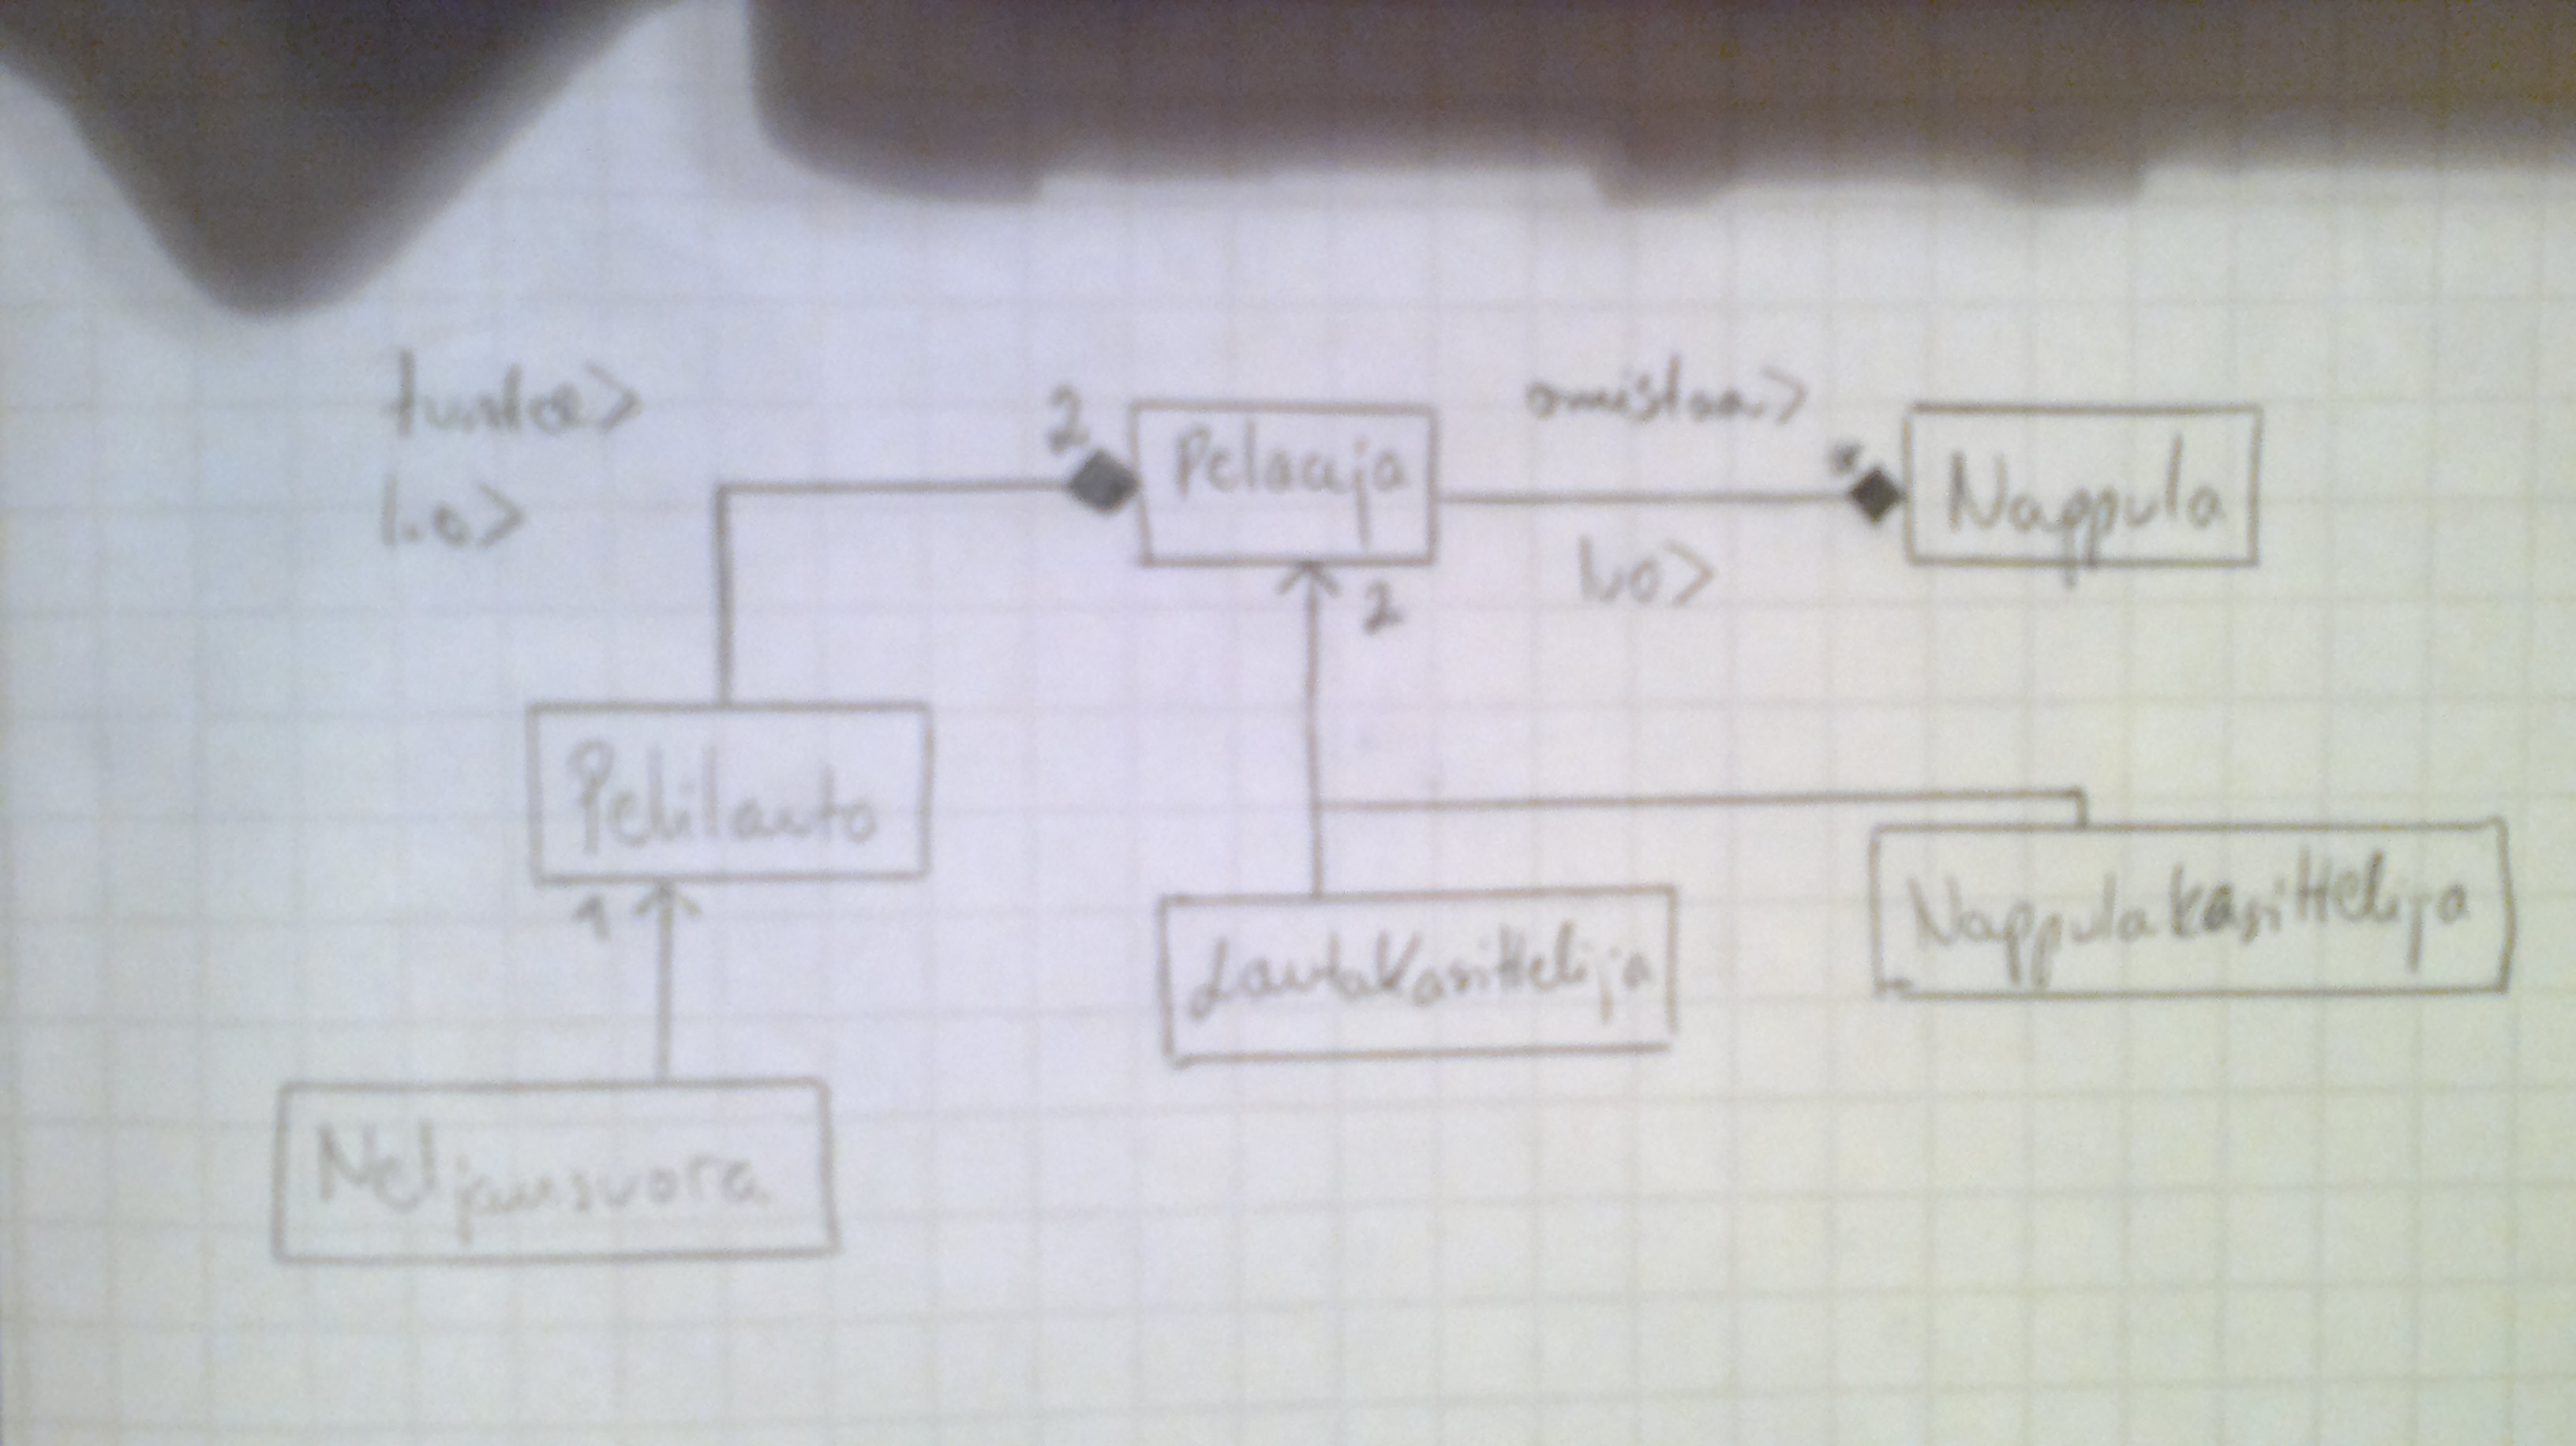 tuntee>
luo>
2
Pelaaja
omistaa>
*
Nappula
luo>
2
Pelilauta
1
Lautakasittelija
Nappulakasittelija
Neljansuora